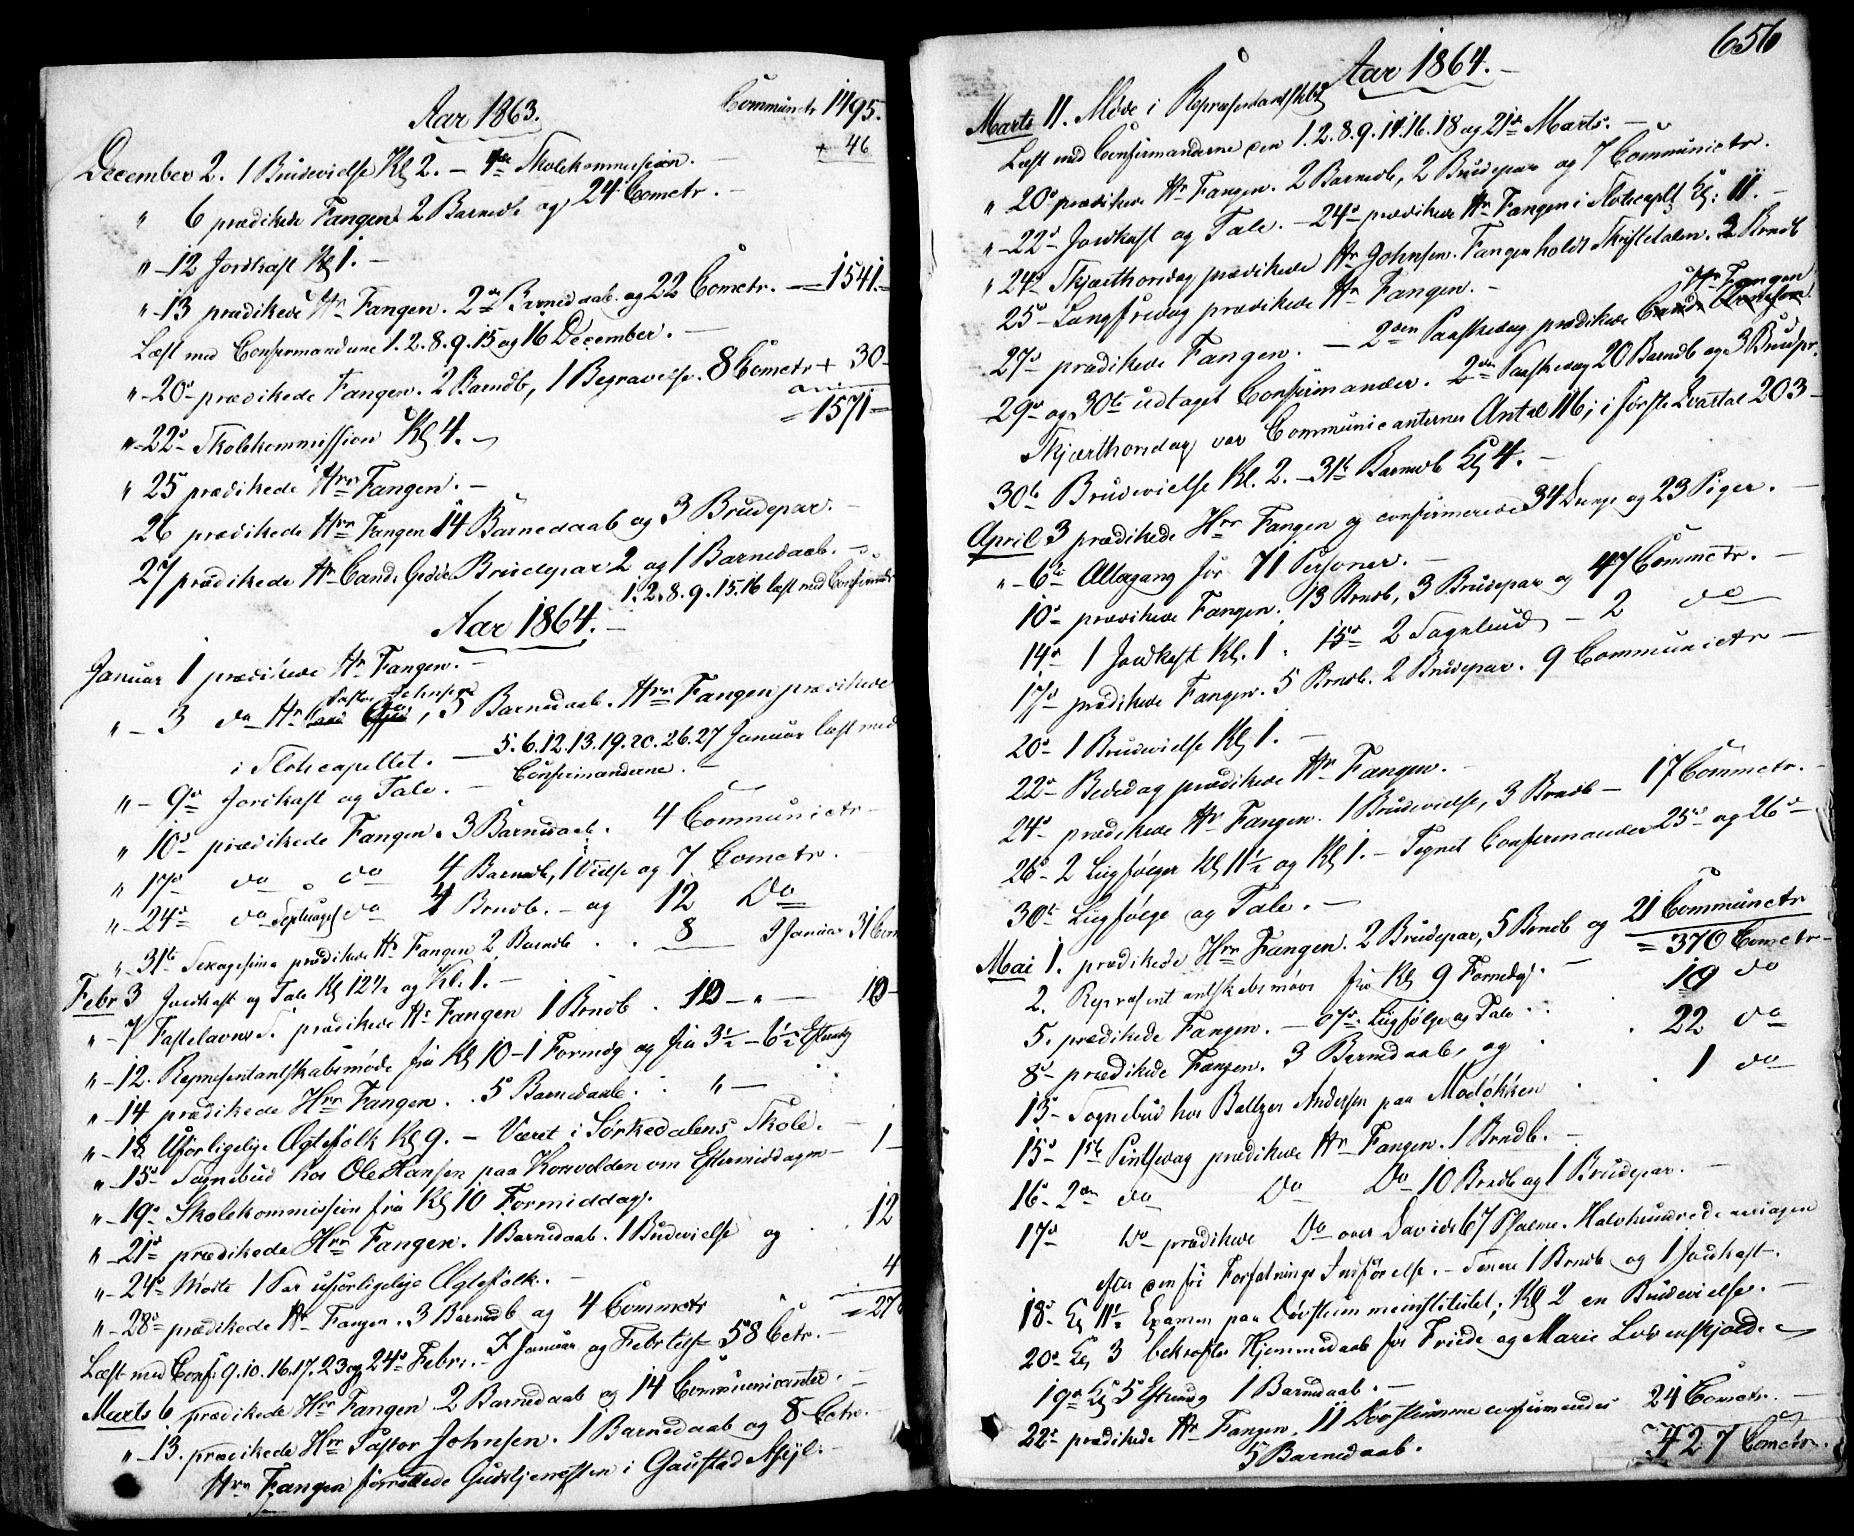 Aar 1863. Communctr 1495.
+ 46
December 2. 1 Brudevielse Kl 2. – Skolekommission. –
" 6 prædikede Fangen 2 Barnedb og 24 Cometr. –
" – 12 Jordkast Kl 1. –
" – 13 prædikede Hr Fangen. 2 Barnedaab og 22 Cometr. – = 1541. –
Læst med Confirmandene 1. 2. 8. 9. 15 og 16 December. –
" – 20 prædikede Fangen. 2 Barndb, 1 Begravelse. 8 Cometr + 30 –
= 1571 –
" – 22 Skolekommission Kl 4. –
" 25 prædikede Hrr Fangen. –
26 prædikede Hrr Fangen 14 Barnedaab og 3 Brudepar. –
27 prædikede Hr Cand. Brudepar 2 og 1 Barnedaab. –
1. 2. 8. 9. 15. 16 læst med Confirmd
Aar 1864. –
Januar 1 prædikede Hr Fangen. –
" – 3 do Hr Pastor Johnsen, 5 Barnedaab. Hrr Fangen prædikede
i Slotscapellet. – 5. 6. 12. 13. 19. 20. 26. 27 Januar læst med
" – 9 Jordkast og Tale. – Confirmanderne. –
" 10 prædikede Fangen. 3 Barnedaab. 4 Communictr –
" 17 do do 4 Barnedb, 1 Vielse og 7 Cometr.
" – 24 do Septuages do 4 Brndb. – og 12 Do
" – 31te Sexagesima prædikede Hr Fangen 2 Barndb . . 8 I Januar 31 Com
Febr 3 Jordkast og Tale Kl 12½ og Kl. 1. –
" – 7 Fastelavns S. prædikede Hr Fangen 1 Brndb . 10 – " – 10 –
" – 12. Repræsentantskabsmøde fra Kl 10 – 1 Formdg og fra 3½ – 6½ Eftmdg
" – 14 prædikede Hrr Fangen. 5 Barnedaab. . " –
" – 18 Uforligelige Ægtefolk Kl 9. – Været i Sørkedalens Skole. –
" – 15 Sognebud hos Ole Hansen paa Korsvolden om Eftermiddagen – 1 –
" – 19 Skolekommission fra Kl 10 Formiddag.
" – 21 prædikede Hrr Fangen. 1 Barnedaab. 1 Brudevielse og . . 12
" – 24 Mødte 1 Par uforligelige Ægtefolk. – 4
" – 28 prædikede Hr Fangen. 3 Barnedb og 4 Commctr = 27
Læst med Conf: 9. 10. 16. 17. 23 og 24 Febr. – I Januar og Febr tils 58 Cctr. –
Marts 6 prædikede Hrr Fangen 2 Barnedaab og 14 Communicanter. –
" – 13. prædikede Hrr Pastor Johnsen. 1 Barnedaab og 8 Cctr. –
Hrr Fangen forrettede Gudstjenesten i Gaustad Asyl. –
656
Aar 1864. –
Marts 11. Møde i Repræsentantskbt
Læst med Confirmanderne den 1. 2. 8. 9. 14. 16. 18 og 21 Marts. –
" 20 prædikede Hr Fangen. 2 Barnedb, 2 Brudepar og 7 Communictr.
" – 22 Jordkast og Tale. – 24 prædikede Hr Fangen i Slotscaplt Kl: 11. –
" 24 Skjærthorsdag prædikede Hr Johnsen. Fangen holdt Skriftetalen. 2 Brndb
25 – Langfredag prædikede Hr Fangen. – Hr Fangen
27 prædikede Fangen. – 2den Paaskedag prædikede
29 og 30te udtaget Confirmander. 2den Paaskedag 20 Barndb og 3 Brudpr.
Skjærthorsdag var Communicanternes Antal 116; i første Qvartal 203 –
30te Brudevielse Kl. 2. – 31te Barnedb Kl 4. –
April 3 prædikede Hrr Fangen og confirmerede 34 Drenge og 23 Piger. –
" – 6te Altergang for 71 Personer. –
10 prædikede Fangen. 13 Brndb, 3 Brudepar og 47 Commctr. –
14 1 Jordkast Kl. 1. 15 2 Sognebud – 2 do
17 prædikede Fangen. 5 Brndb. 2 Brudepar. 9 Communictr –
20 – 1 Brudevielse Kl 1. –
22 – Bededag prædikede Hr Fangen. –
24 prædikede Hr Fangen. 1 Brudevielse, 3 Brndb – 17 Commctr. –
26 – 2 Liigfølger Kl 11½ og Kl 1. – Tegnet Confirmander 25 og 26
30te Liigfølge og Tale. –
Mai 1. prædikede Hrr Fangen. 2 Brudepar, 5 Brndb og 21 Communctr
= 370 Cometr –
2. Repræsentantskabsmøde fra Kl 9 Formdg. – 10 do
5. prædikede Fangen. – 07. Liigfølge og Tale . . . 22 do
8 prædikede Fangen. 3 Barnedaab, og . . 1 do
13 – Sognebud hos Baltzer Andersen paa Modløkken
15 1ste Pintsedag prædikede Hr Fangen. 1 Brndb. –
16 – 2den do Do Do 10 Brndb og 1 Brudepar. –
17 Do prædikede Do over Davids 67 Psalme. Halvhundrede aarsdagen
efter den fri Forfatnings Indførelse. – Senere 1 Brndb og 1 Jordkast. –
18 – Kl 11½ Examen paa Døvstummeinstitutet; Kl 2 en Brudevielse. –
20 Kl 3 bekræftes Hjemmedaab for Friede og Marie Løvenskjold. –
19 Kl 5 Eftmdg 1 Barnedaab. –
22 prædikede Hr Fangen. 11 Døvstumme confirmeredes 24 Cometr. –
5 Barnedaab. 427 Cometr.